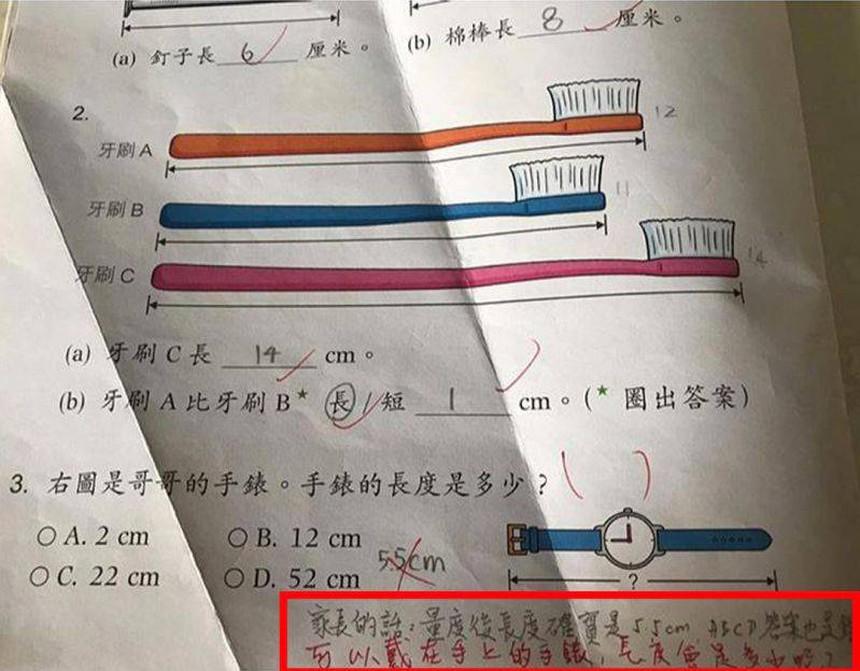 (a) 釘子長 6 厘米。
(b) 棉棒長 8 厘米。
2.
牙刷 A
12
牙刷 B
11
牙刷 C
14
(a) 牙刷 C 長 14 cm。
(b) 牙刷 A 比牙刷 B★ 長 / 短 1 cm。(★ 圈出答案)
3. 右圖是哥哥的手錶。手錶的長度是多少? ( )
A. 2 cm
B. 12 cm
C. 22 cm
D. 52 cm
5.5cm
?
家長的話:量度後長度確實是 5.5cm ABCD答案也是錯
可以戴在手上的手錶,長度會是多少呢?